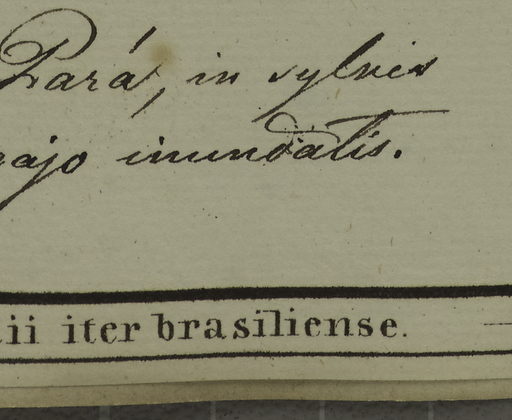 Pará, in sylvis
inundatis.
iter brasiliense.